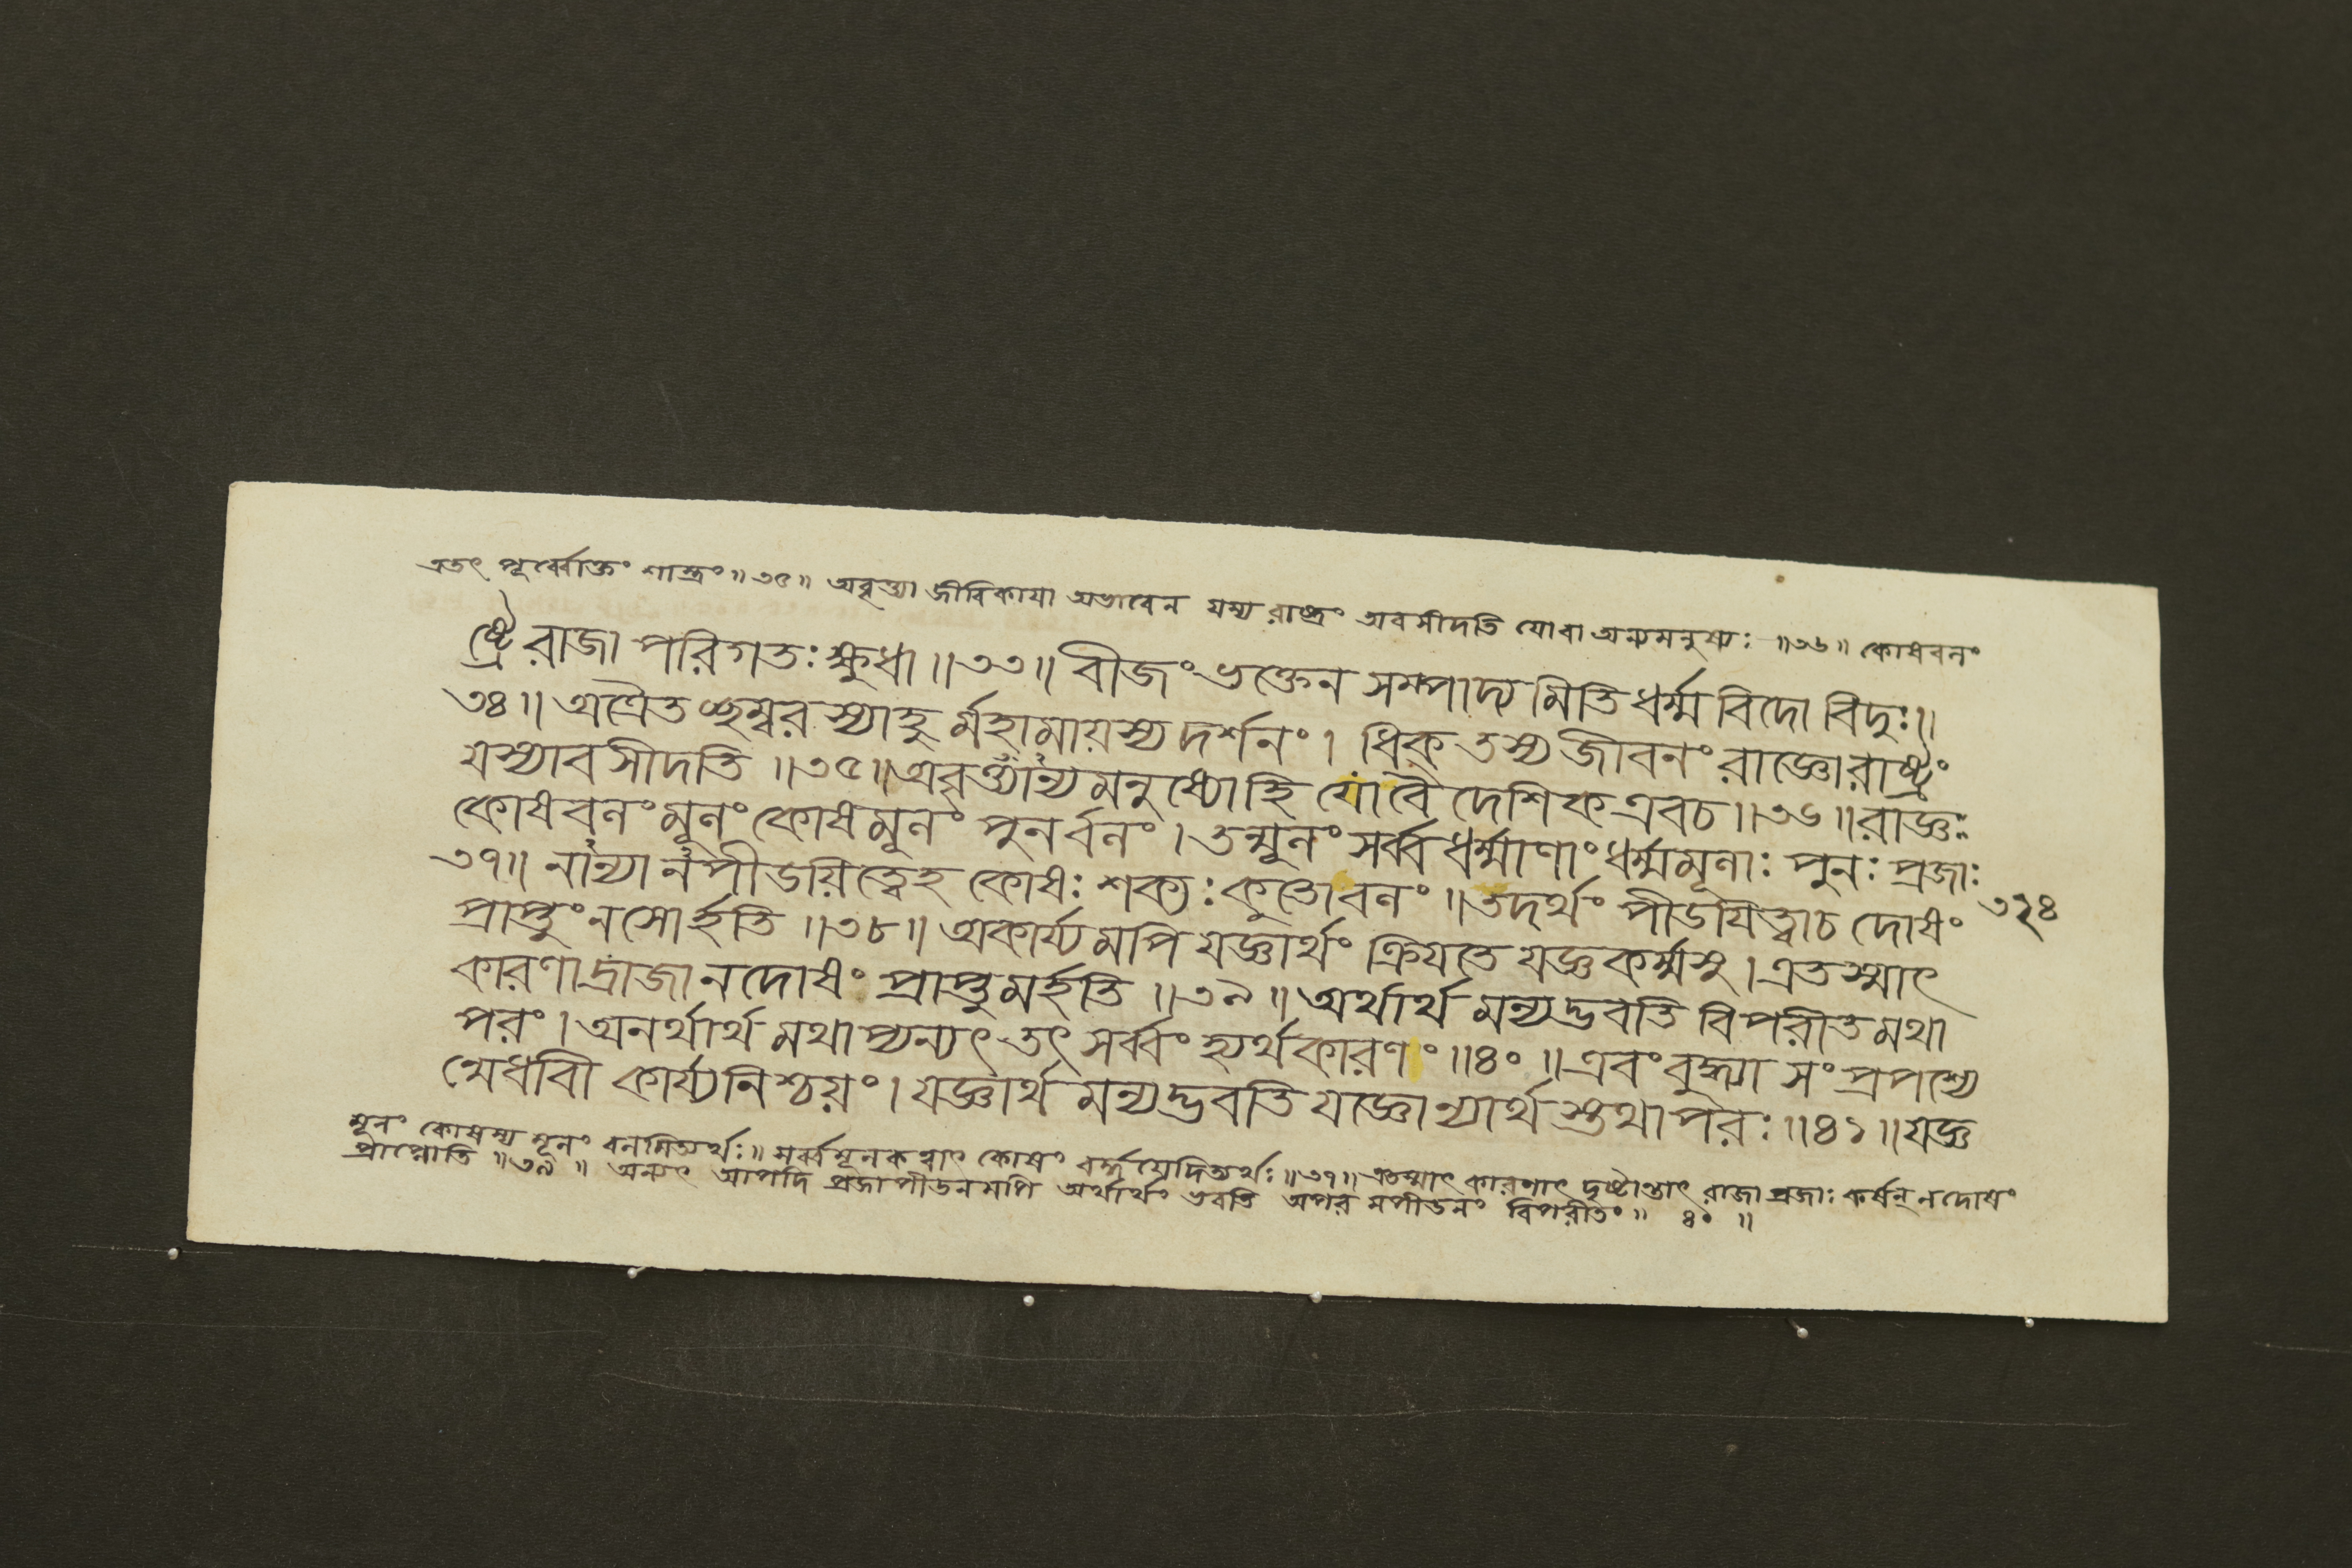 এতৎ পূর্ব্বোক্তং শাস্ত্রং ॥ ৩৫ ॥ অবৃত্ত্যা জীবিকায়া অভাবেন যস্য রাষ্ট্রং অবসীদতি যোবা অন্যমনুষ্যঃ ॥ ৩৬ ॥ কোষবলং
ষ্ট্রে রাজা পরিগতঃ ক্ষুধা ॥ ৩৩ ॥ বীজং ভক্তেন সম্পাদ্য মিতি ধর্ম্ম বিদো বিদুঃ ॥
৩৪ ॥ অত্রৈতচ্ছম্বর স্যাহু র্মহামায়স্য দর্শনং । ধিক্ তস্য জীবনং রাজ্ঞো রাষ্ট্রং
যস্যাব সীদতি ॥ ৩৫ ॥ অবৃত্ত্যান্য মনুষ্যোহি যো বৈ দেশিক এবচ ॥ ৩৬ ॥ রাজ্ঞঃ
কোষবলং মূলং কোষমূলং পুনর্বলং । তন্মূলং সর্ব্ব ধর্ম্মাণাং ধর্ম্মমূলাঃ পুনঃ প্রজাঃ
৩৭ ॥ নান্যা নপীডয়িত্বেহ কোষঃ শক্যঃ কুতোবলং ॥ তদর্থং পীডযিত্বাচ দোষং
৩২৪
প্রাপ্তুং নসোর্হতি ॥ ৩৮ ॥ অকার্য্য মপি যজ্ঞার্থং ক্রিযতে যজ্ঞকর্ম্মসু । এতস্মাৎ
কারণাদ্রাজা নদোষং প্রাপ্তুমর্হতি ॥ ৩৯ ॥ অর্থার্থ মন্যদ্ভবতি বিপরীত মথা
পরং । অনর্থার্থ মথাপ্যন্যৎ তৎ সর্ব্বং হ্যর্থকারণং ॥ ৪০ ॥ এবং বুদ্ধ্যা সংপ্রপশ্যে
ন্মেধাবী কার্য্যনিশ্চয়ং । যজ্ঞার্থ মন্যদ্ভবতি যজ্ঞোন্যার্থ স্তথাপরঃ ॥ ৪১ ॥ যজ্ঞ
মূলং কোষস্য মূলং বলমিত্যর্থঃ ॥ সর্ব্বমূলকত্বাৎ কোষং বর্দ্ধয়েদিত্যর্থঃ ॥ ৩৭ ॥ এতস্মাৎ কারণাৎ দৃষ্টান্তাৎ রাজা প্রজাঃ কর্ষন্ নদোষং
প্রাপ্নোতি ॥ ৩৯ ॥ অন্যৎ আপদি প্রজাপীডনমপি অর্থার্থং ভবতি অপর মপীডনং বিপরীতং ॥ ৪০ ॥